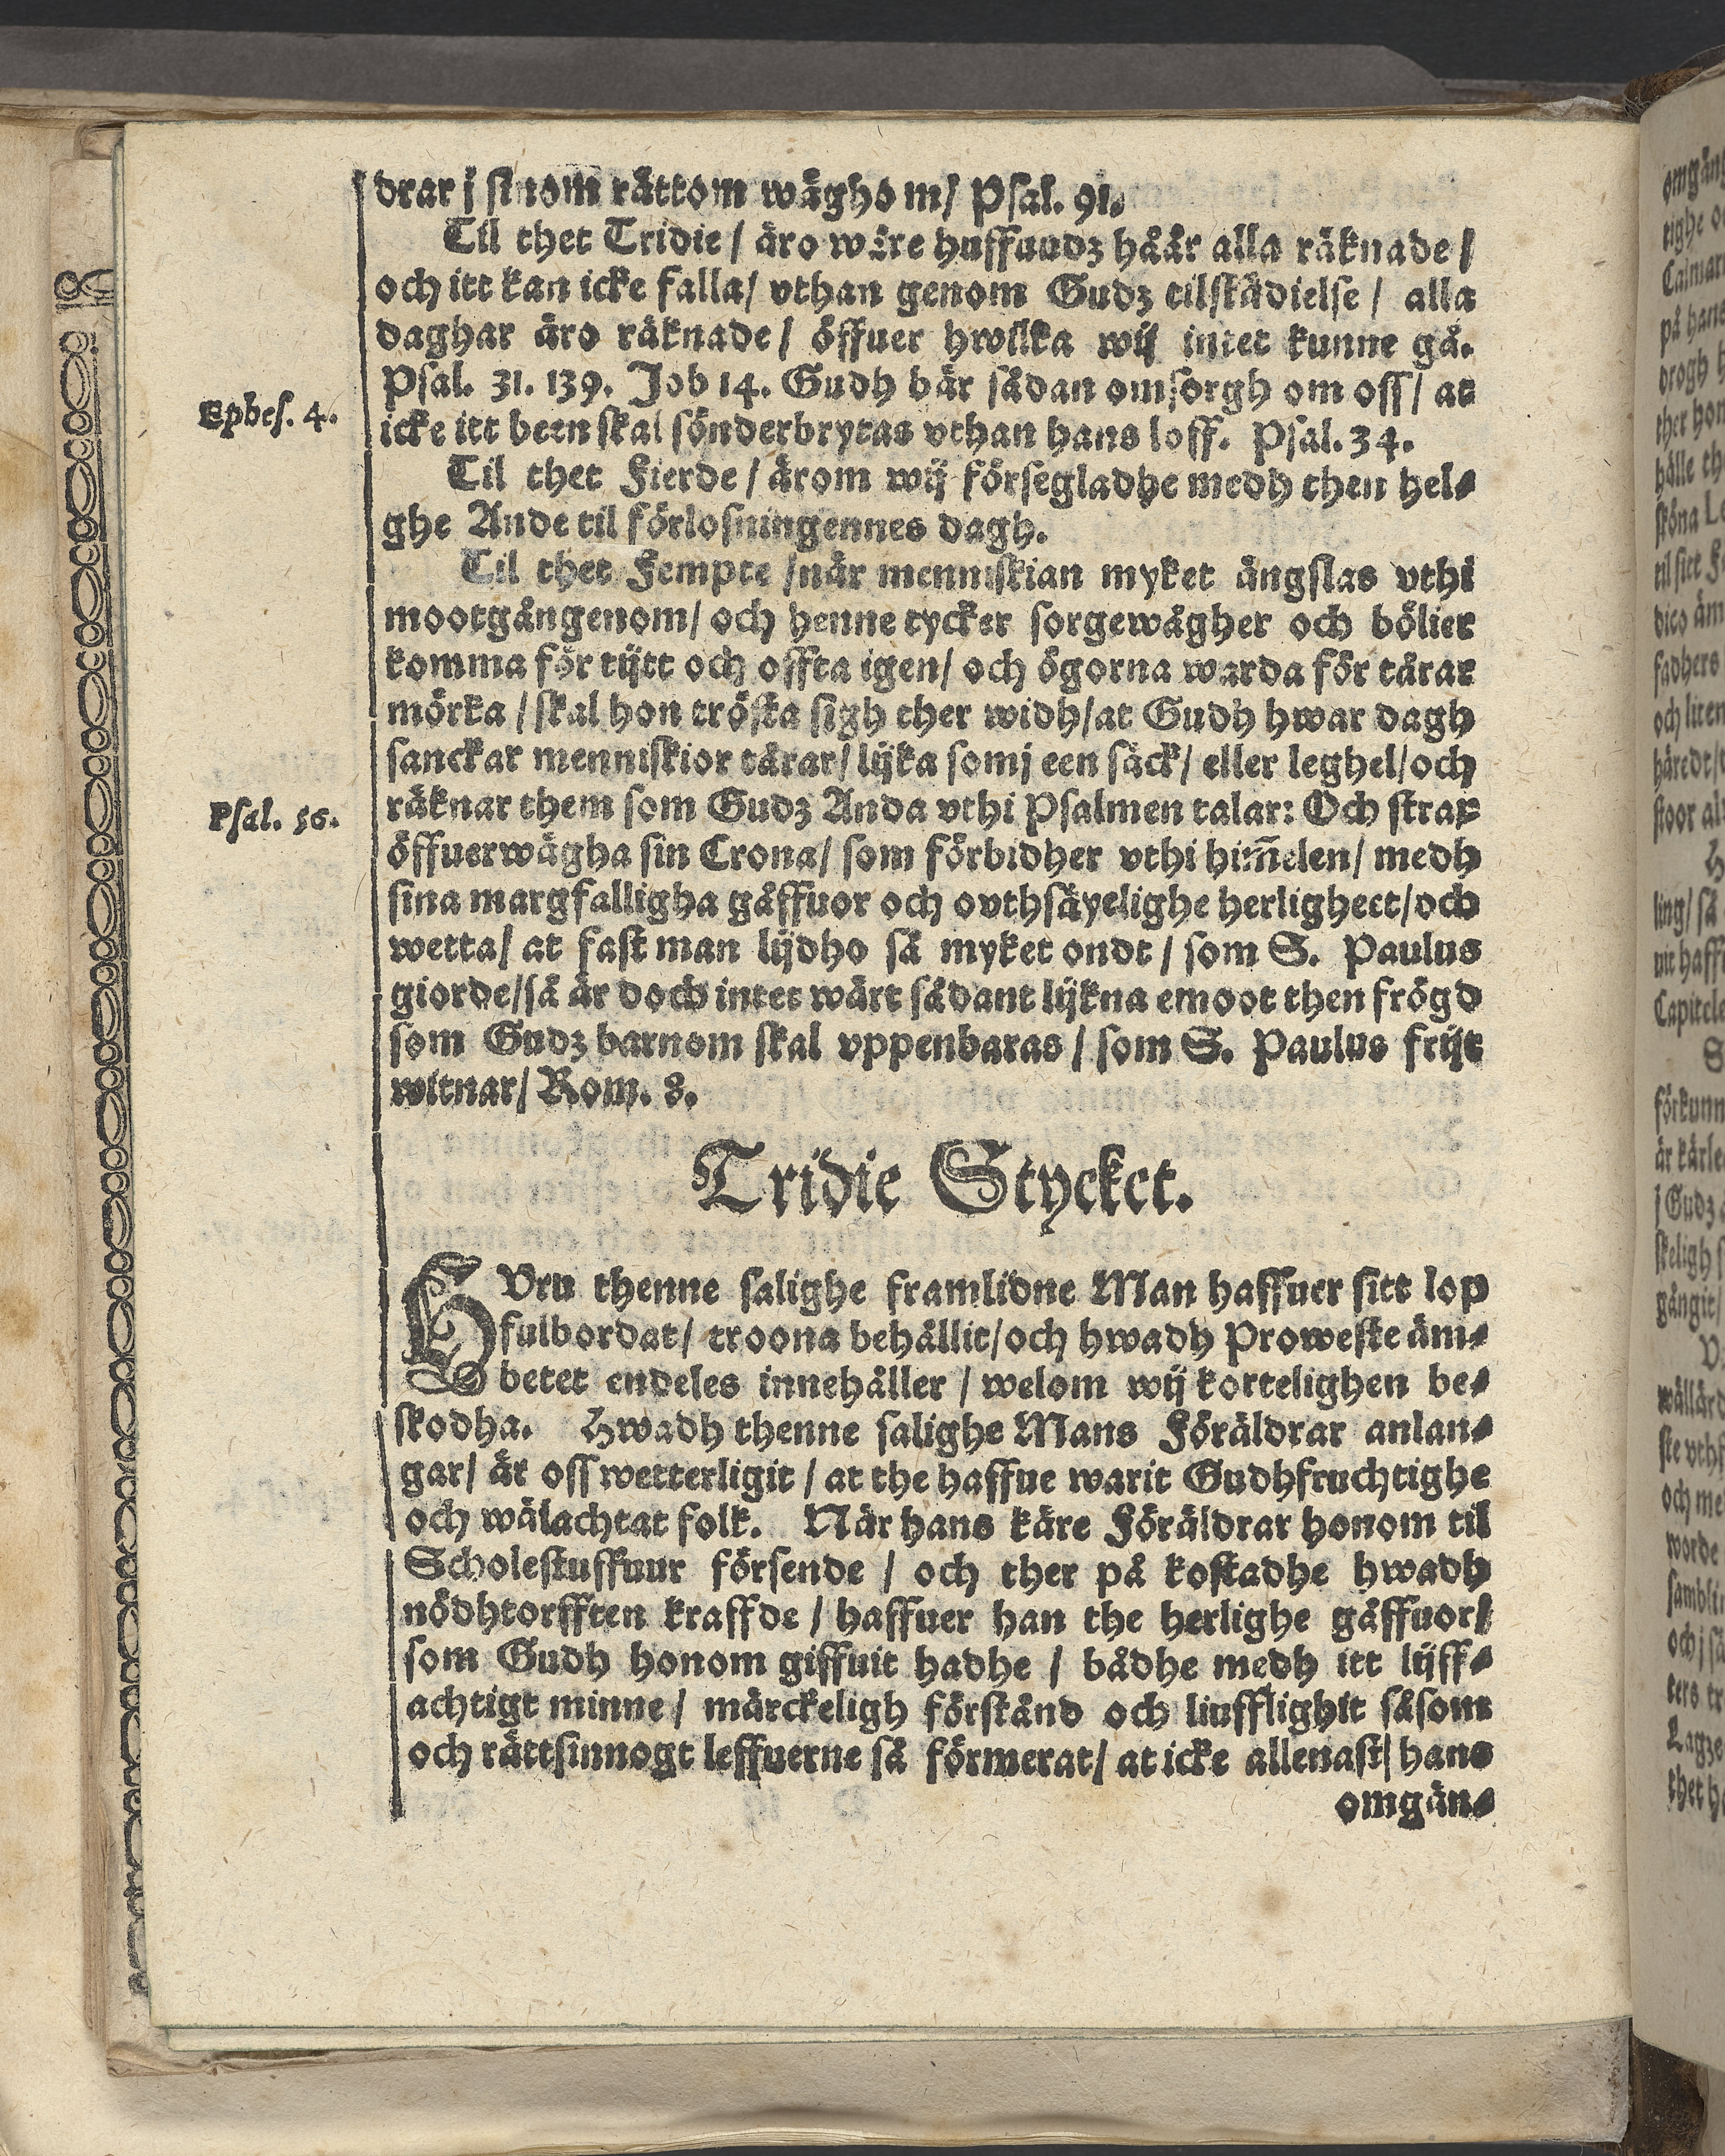 drar j sinom rättom wäghom/ Psal. 91.
Til thet Tridie / äro wåre huffuudz håår alla räknade /
och itt kan icke falla/ vthan genom Gudz tilstädielse / alla
daghar äro räknade / öffuer hwilka wij intet kunne gå.
Psal. 31. 139. Job 14. Gudh bär sådan omsorgh om oss / at
Ephes. 4.
icke itt been skal sönderbrytas vthan hans loff. Psal. 34.
Til thet Fierde / ärom wij försegladhe medh then hel⸗
ghe Ande til förlosningennes dagh.
Til thet Fempte /när menniskian myket ängslas vthi
mootgångenom/ och henne tycker sorgewågher och bölier
komma för tijtt och offta igen/ och ögorna warda för tårar
mörka / skal hon trösta sigh ther widh/at Gudh hwar dagh
sanckar menniskior tårar/ lijka somj een säck/ eller leghel/och
Psal. 56.
räknar them som Gudz Anda vthi Psalmen talar: Och strax
öffuerwägha sin Crona/ som förbidher vthi him̃elen/ medh
sina margfalligha gåffuor och ovthsäyelighe herligheet/och
wetta/ at fast man lijdho så myket ondt / som S. Paulus
giorde/så är doch intet wärt sådant lijkna emoot then frögd
som Gudz barnom skal vppenbaras / som S. Paulus frijt
witnar/ Rom. 8.
Tridie Stycket.
HVru thenne salighe framlidne Man haffuer sitt lop
fulbordat/ troona behållit/och hwadh Prowesteäm⸗
betet endeles innehåller / welom wij kortelighen be⸗
skodha. Hwadh thenne salighe Mans Föräldrar anlan⸗
gar/ är oss wetterligit / at the haffue warit Gudhfruchtighe
och wälachtat folk. När hans käre Föräldrar honom til
Scholestuffuur försende / och ther på kostadhe hwadh
nödhtorfften kraffde / haffuer han the herlighe gåffuor/
som Gudh honom giffuit hadhe / bådhe medh itt lijff⸗
achtigt minne / märckeligh förstånd och liufflighit såsom
och rättsinnogt leffuerne så förmerat/ at icke allenast/ hans
omgän⸗